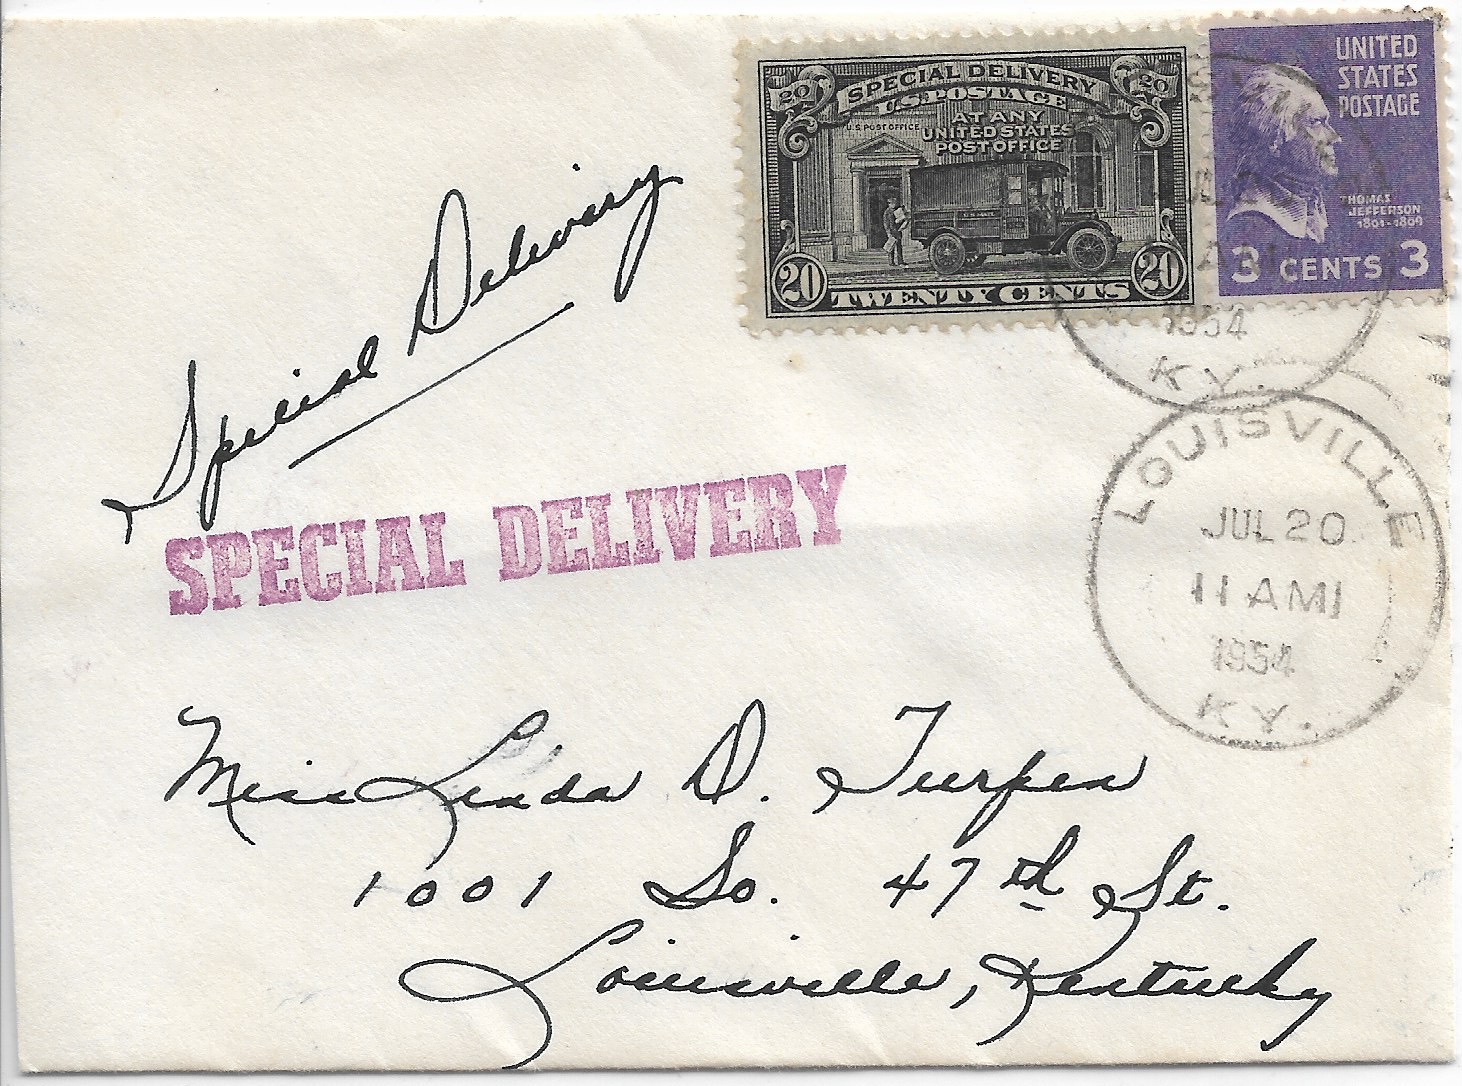 20 SPECIAL DELIVERY 20
U.S. POSTAGE
AT ANY
UNITED STATES
POST OFFICE
U.S. POST OFFICE
U.S. MAIL
20 TWENTY CENTS 20
UNITED
STATES
POSTAGE
THOMAS
JEFFERSON
1801-1809
3 CENTS 3
1954
KY.
Special Delivery
SPECIAL DELIVERY
LOUISVILLE
JUL 20
11 AM
1954
KY.
Miss Linda D. Turpen
1001 So. 47th St.
Louisville, Kentucky